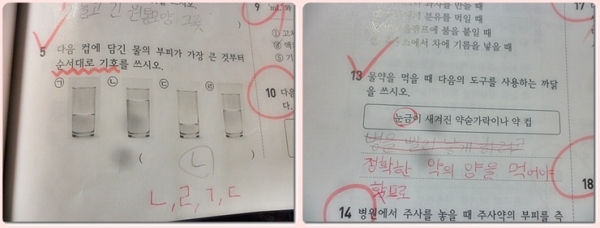 9
5 다음 컵에 담긴 물의 부피가 가장 큰 것부터
순서대로 기호를 쓰시오.
㉠ ㉡ ㉢ ㉣
( ㄴ
ㄴ, ㄹ, ㄱ, ㄷ
10
다.
에 분유를 먹일 때
에 물을 붙일 때
스에서 차에 기름을 넣을 때
17
13 물약을 먹을 때 다음의 도구를 사용하는 까닭
을 쓰시오.
눈금이 새겨진 약숟가락이나 약 컵
정확한 약의 양을 먹어야
하므로
18
14 병원에서 주사를 놓을 때 주사약의 부피를 측